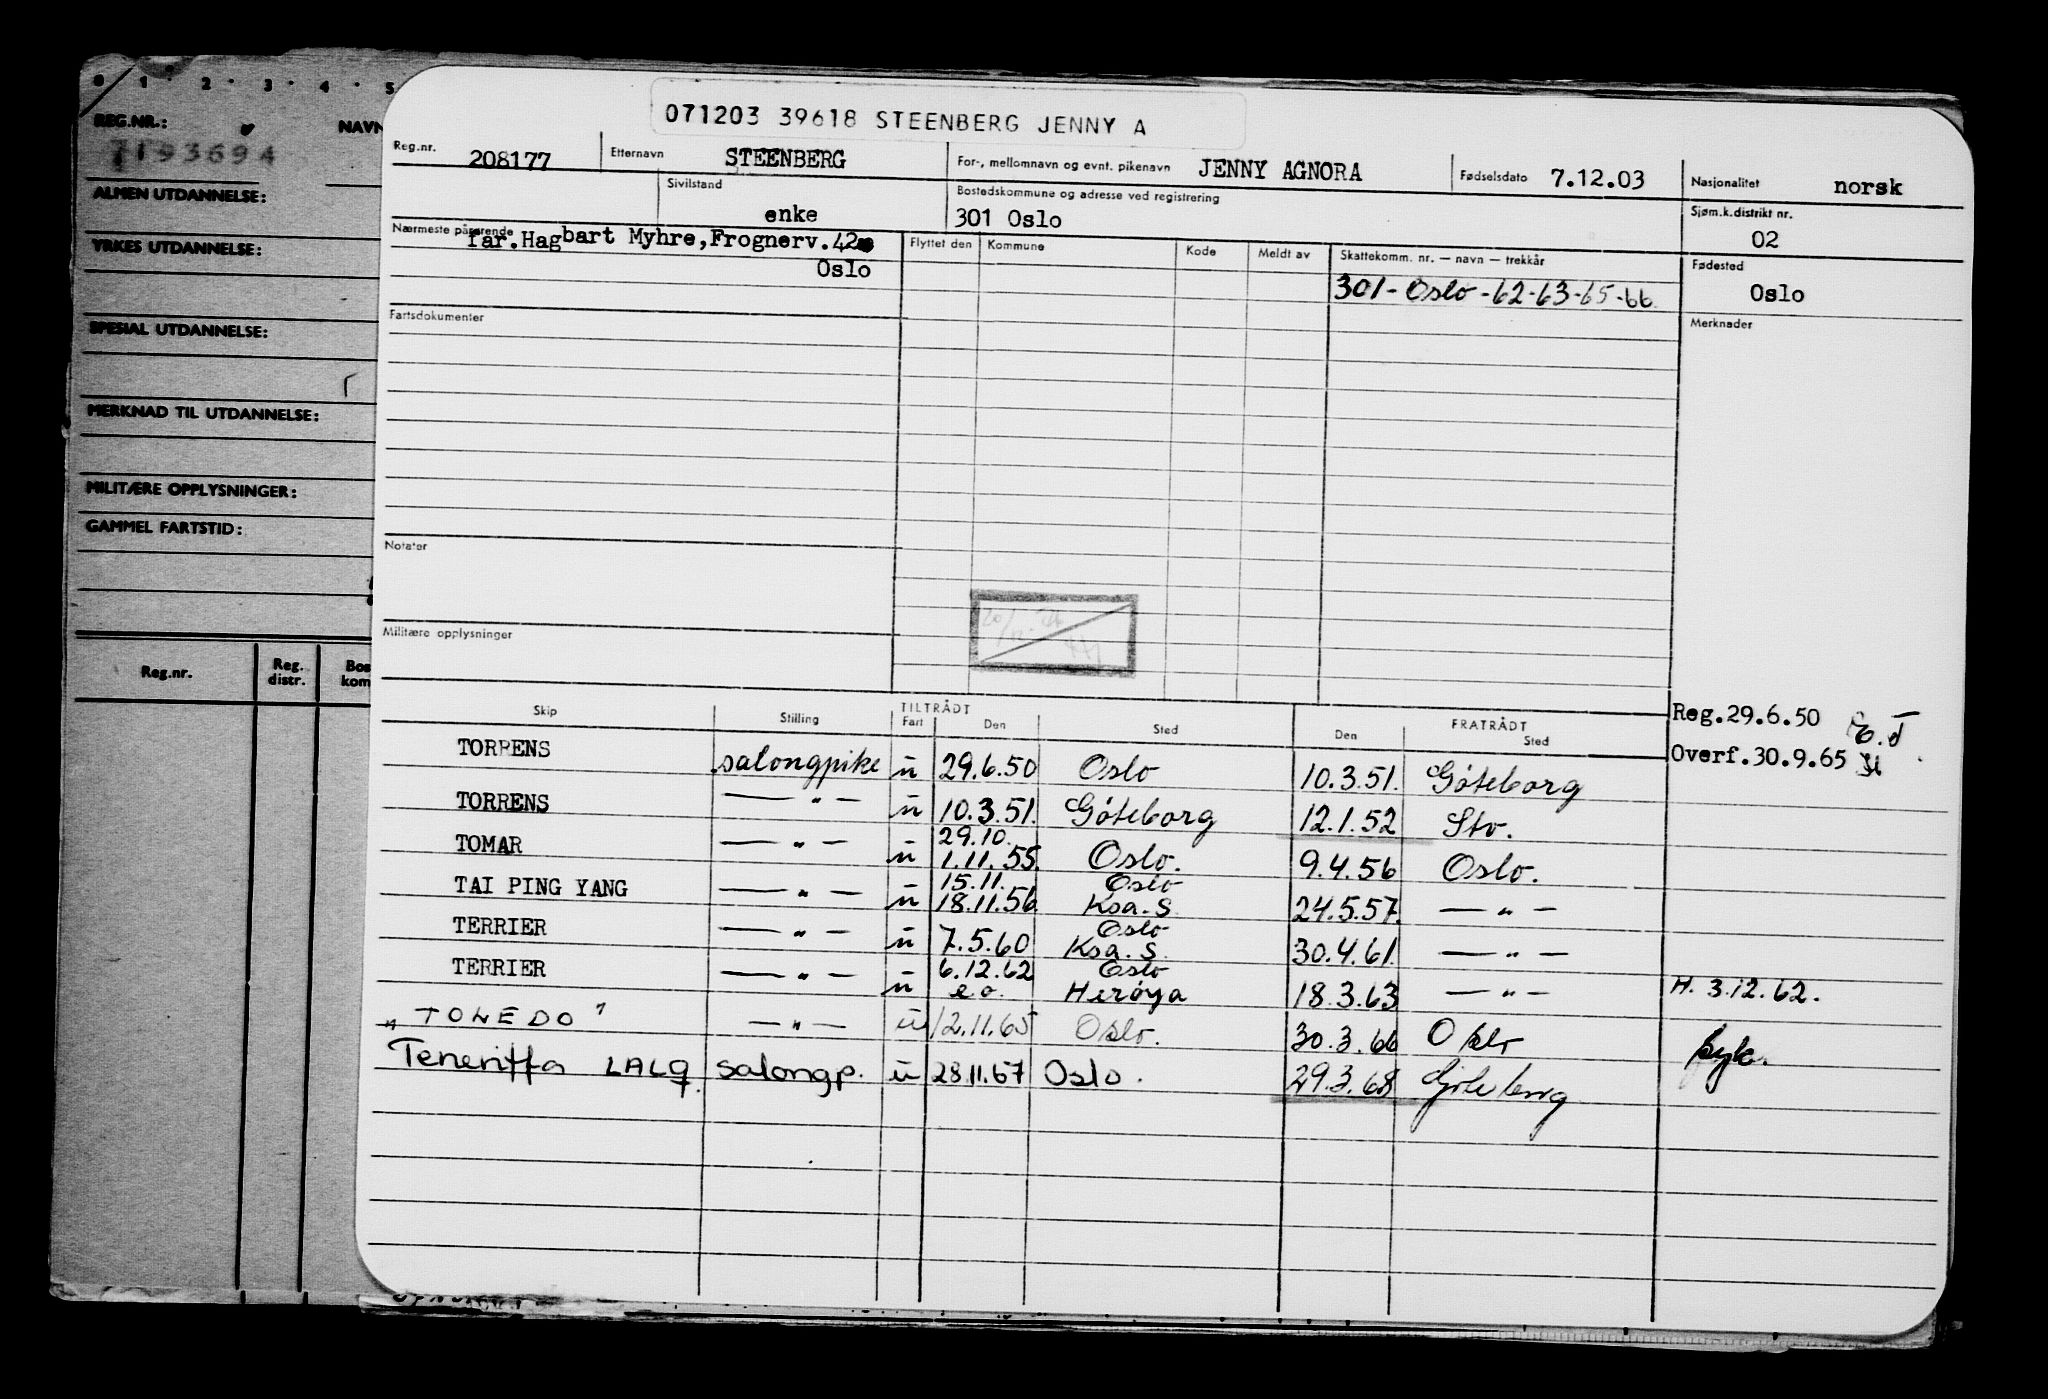 0 1 2 3 4 5
REG.NR.: NAVN
7193694
ALMEN UTDANNELSE:
YRKES UTDANNELSE:
SPESIAL UTDANNELSE:
MERKNAD TIL UTDANNELSE:
MILITÆRE OPPLYSNINGER:
GAMMEL FARTSTID:
Reg.nr. Reg. distr. Bos kom
071203 39618 STEENBERG JENNY A
Reg.nr. 208177 Etternavn STEENBERG For-, mellomnavn og evnt. pikenavn JENNY AGNORA Fødselsdato 7.12.03 Nasjonalitet norsk
Sivilstand enke Bostedskommune og adresse ved registrering 301 Oslo Sjøm.k.distrikt nr. 02
Nærmeste pårørende far.Hagbart Myhre,Frognerv.42 Flyttet den Kommune Kode Meldt av Skattekomm. nr. — navn — trekkår Fødested
Oslo 301 - Oslo - 62-63-65-66 Oslo
Fartsdokumenter Merknader
Notater
Militære opplysninger
Reg.29.6.50
Overf.30.9.65
Skip Stilling TILTRÅDT Fart Den Sted Den FRATRÅDT Sted
TORRENS salongpike u 29.6.50 Oslo 10.3.51. Göteborg
TORRENS — " — u 10.3.51. Göteborg 12.1.52 Stv.
29.10.
TOMAR — " — u 1.11.55. Oslo. 9.4.56 Oslo.
15.11. Oslo
TAI PING YANG — " — u 18.11.56 Ksa.S. 24.5.57. — " —
Oslo
TERRIER — " — u 7.5.60 Ksa.S. 30.4.61. — " —
6.12.62 Oslo
TERRIER — " — u e.o. Herøya 18.3.63 — " — H. 3.12.62.
"TOLEDO" — " — u 12.11.65 Oslo. 30.3.66 Oslo
Teneriffa LALQ salongp. u 28.11.67 Oslo. 29.3.68 Göteborg